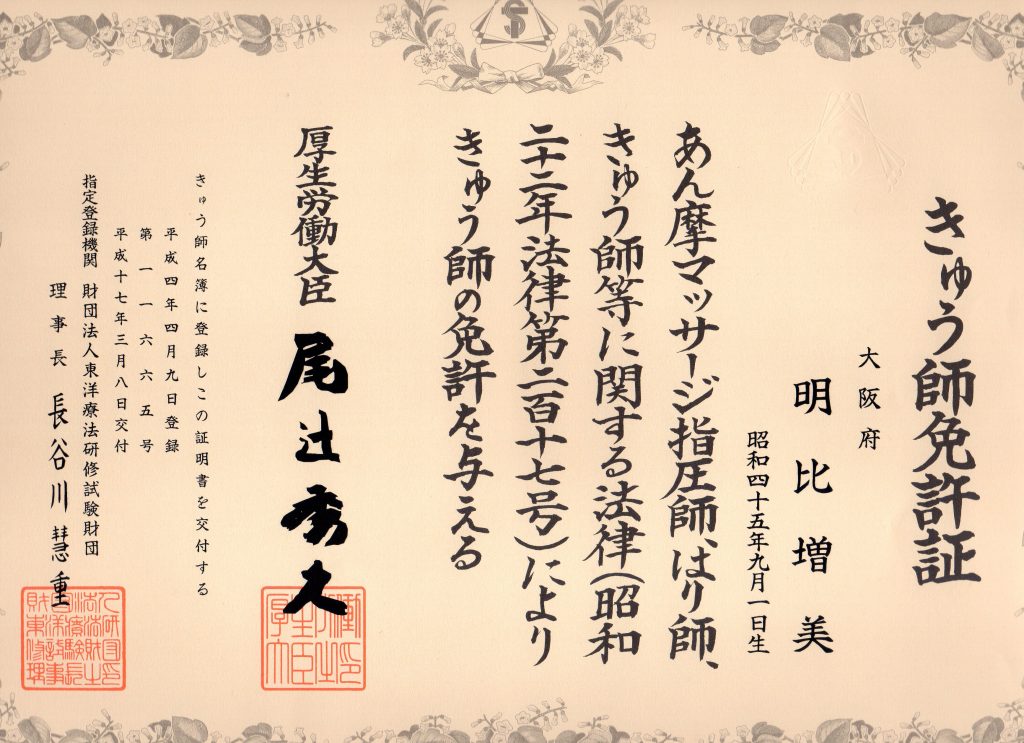 きゅう師免許証
大阪府
明比増美
昭和四十五年九月一日生
あん摩マッサージ指圧師、はり師、
きゅう師等に関する法律(昭和
二十二年法律第二百十七号)により
きゅう師の免許を与える
厚生労働大臣 尾辻秀久
きゅう師名簿に登録しこの証明書を交付する
平成四年四月九日登録
第一一六六五号
平成十七年三月八日交付
指定登録機関 財団法人東洋療法研修試験財団
理事長 長谷川慧重